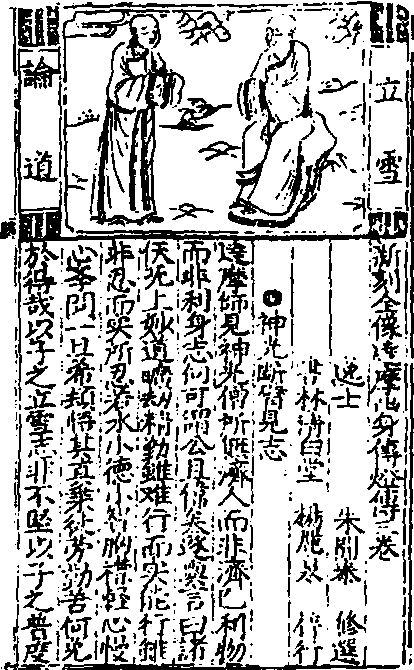 立雪
論道
新刻全像達摩出身傳燈傳三卷
逸士 朱開泰 修選
書林清白堂 楊麗泉 梓行
神光斷臂見志
達摩師見神光 所 濟人而非濟己利物
而非利身志何可謂公且偉矣遂 言曰諸
佛无上妙道曠劫精勤難行而 能行
非忍而 所忍若 小德小智胸襟輕心慢
心 問一旦希頓悟其真乘徒勞勤苦何
於得哉以子之立雪志非不堅以子之普度